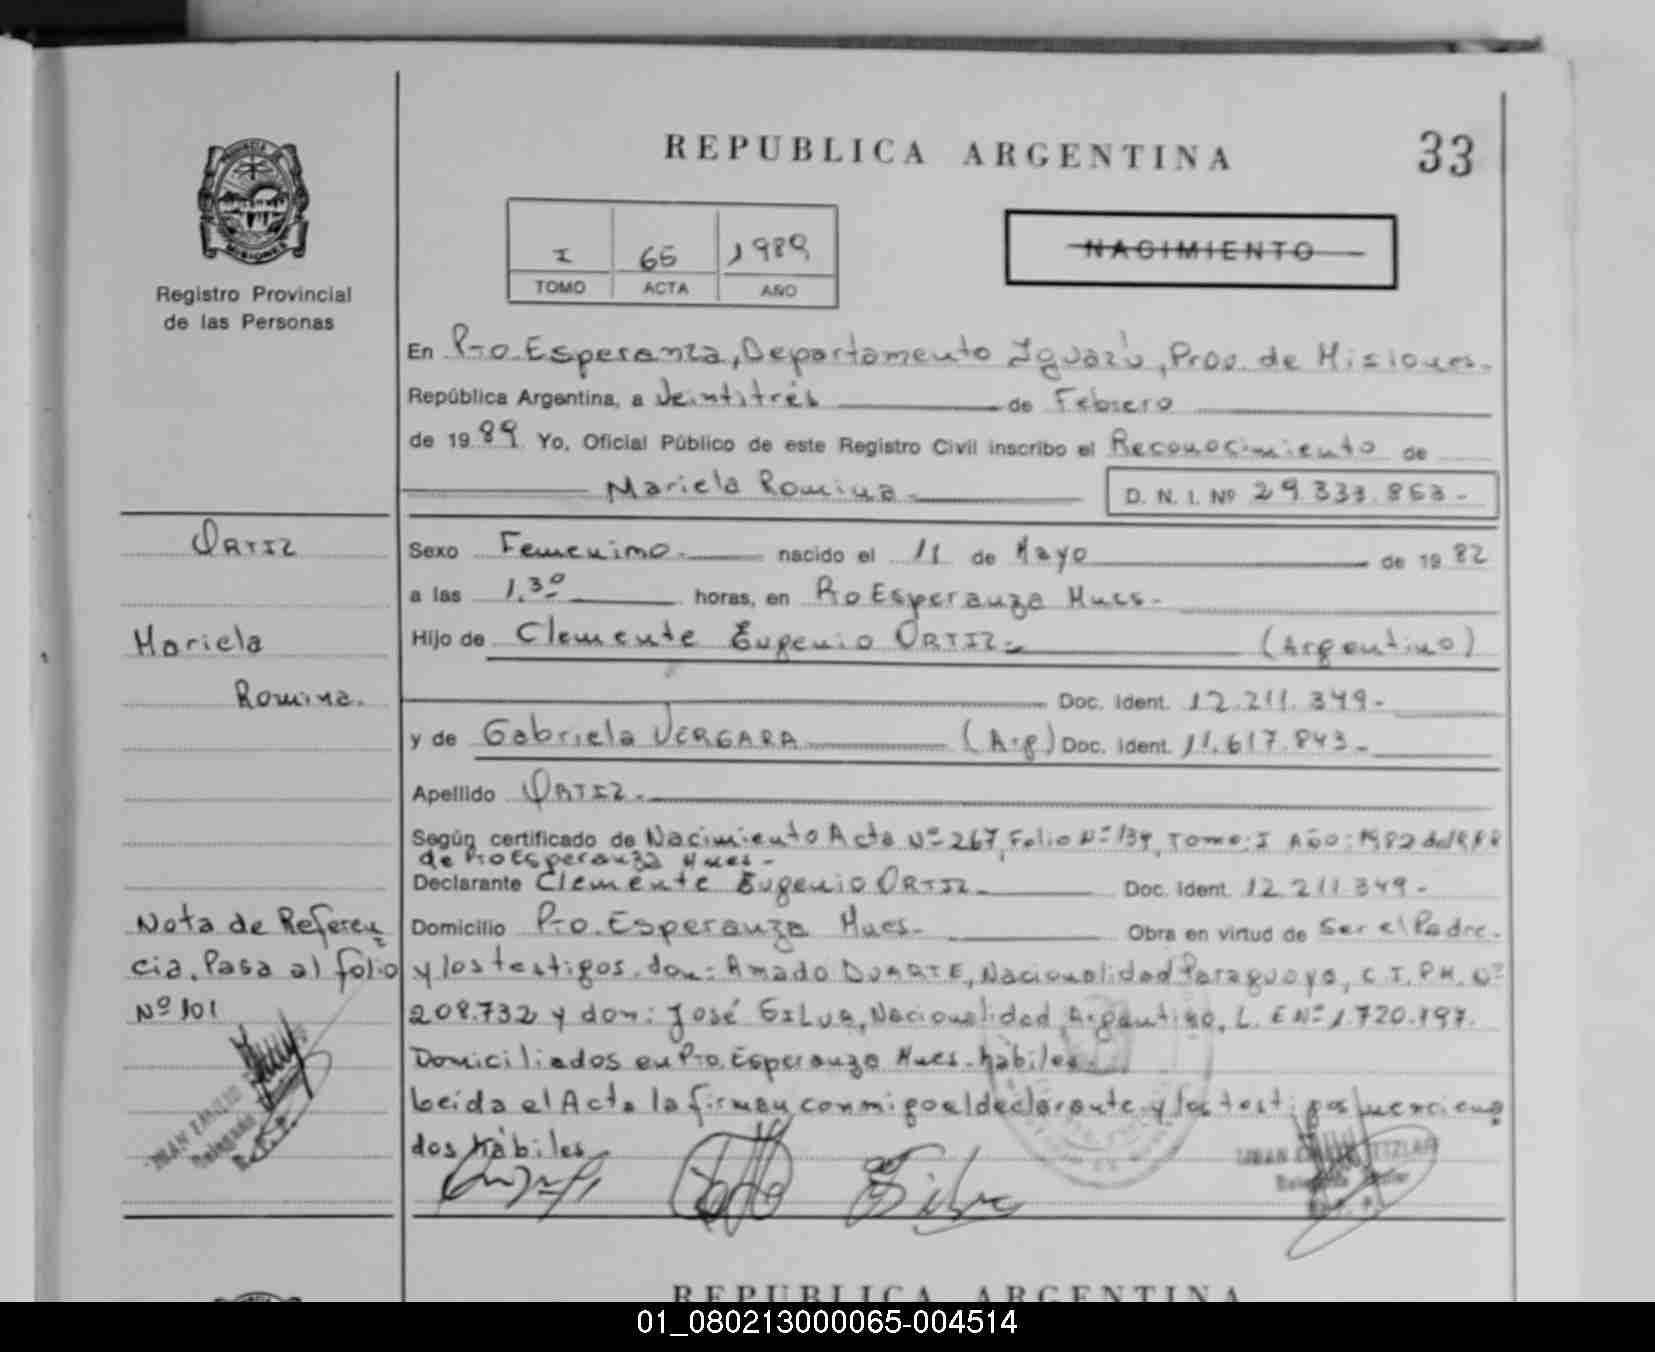 REPUBLICA ARGENTINA
33
PROVINCIA DE
MISIONES
Registro Provincial
de las Personas
I 65 1989
TOMO ACTA AÑO
NACIMIENTO
En Pto. Esperanza, Departamento Iguazú, Prov. de Misiones.
República Argentina, a Veintitrés de Febrero
de 1989 Yo, Oficial Público de este Registro Civil inscribo el Reconocimiento de
Mariela Romina. D. N. I. Nº 29.333.853.-
ORTIZ
Mariela
Romina.
Sexo Femenino. nacido el 11 de Mayo de 1982
a las 1.30 horas, en Pto Esperanza Mnes.
Hijo de Clemente Eugenio ORTIZ.- (Argentino)
Doc. Ident. 12.211.349.-
y de Gabriela VERGARA (Arg) Doc. Ident. 11.617.843.-
Apellido ORTIZ.
Según certificado de Nacimiento Acta Nº 267, Folio Nº 134, Tomo: I Año: 1982 del
de Pto Esperanza Mnes.-
Declarante Clemente Eugenio ORTIZ. Doc. Ident. 12.211.349.-
Domicilio Pto. Esperanza Mnes. Obra en virtud de Ser el Padre.
y los testigos. don: Amado DUARTE, Nacionalidad Paraguaya, C.I.P.M. Nº
208.732 y don: José SILVA, Nacionalidad Argentino, L.E Nº 1.720.797.
Domiciliados en Pto. Esperanza Mnes. hábiles.
Leída el Acta la firman conmigo el declarante y los testigos menciona
dos hábiles
Nota de Referen
cia. Pasa al folio
Nº 101
Silva
REPUBLICA ARGENTINA
01_080213000065-004514